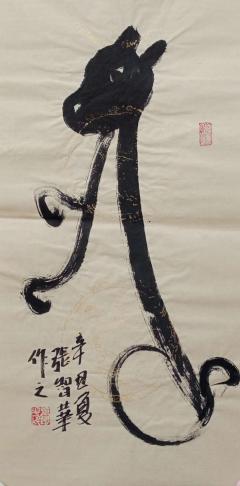 辛丑夏
张智華
作之